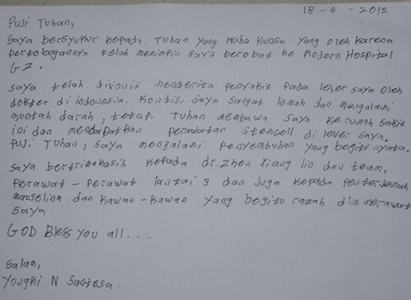 18 - 6 - 2012
Puji Tuhan,
Saya bersyukur kepada Tuhan yang Maha Kuasa yang oleh karena
pertolongannya telah memimpin saya berobat ke Modern Hospital
GZ.
Saya telah divonis menderita penyakit pada lever saya oleh
dokter di indonesia. Kondisi saya sangat lemah dan mengalami
muntah darah, tetapi Tuhan membawa saya ke rumah sakit
ini dan mendapatkan perawatan stemcell di lever saya.
Puji Tuhan, saya mengalami penyembuhan yang begitu nyata.
Saya berterimakasih kepada dr. Zhen Xiang lin dan team,
perawat - perawat lantai 3 dan juga kepada penterjemah
marselina dan kawan - kawan yang begitu ramah dlm merawat
saya
GOD Bless you all . . .
Salam,
Yongki N Santosa.